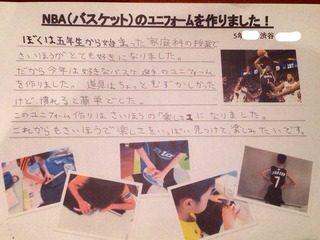 NBA(バスケット)のユニフォームを作りました!
5年 渋谷
ぼくは五年生から始まった家庭科の授業で
さいほうがとても好きになりました。
だから今年は好きなバスケ選手のユニフォーム
を作りました。道具はちょっとむずかしかった
けど、慣れると簡単でした。
このユニフォーム作りはさいほうの「楽しさ」になりました。
これからもさいほうで楽しさをいっぱい見つけて、楽しみたいです。
7